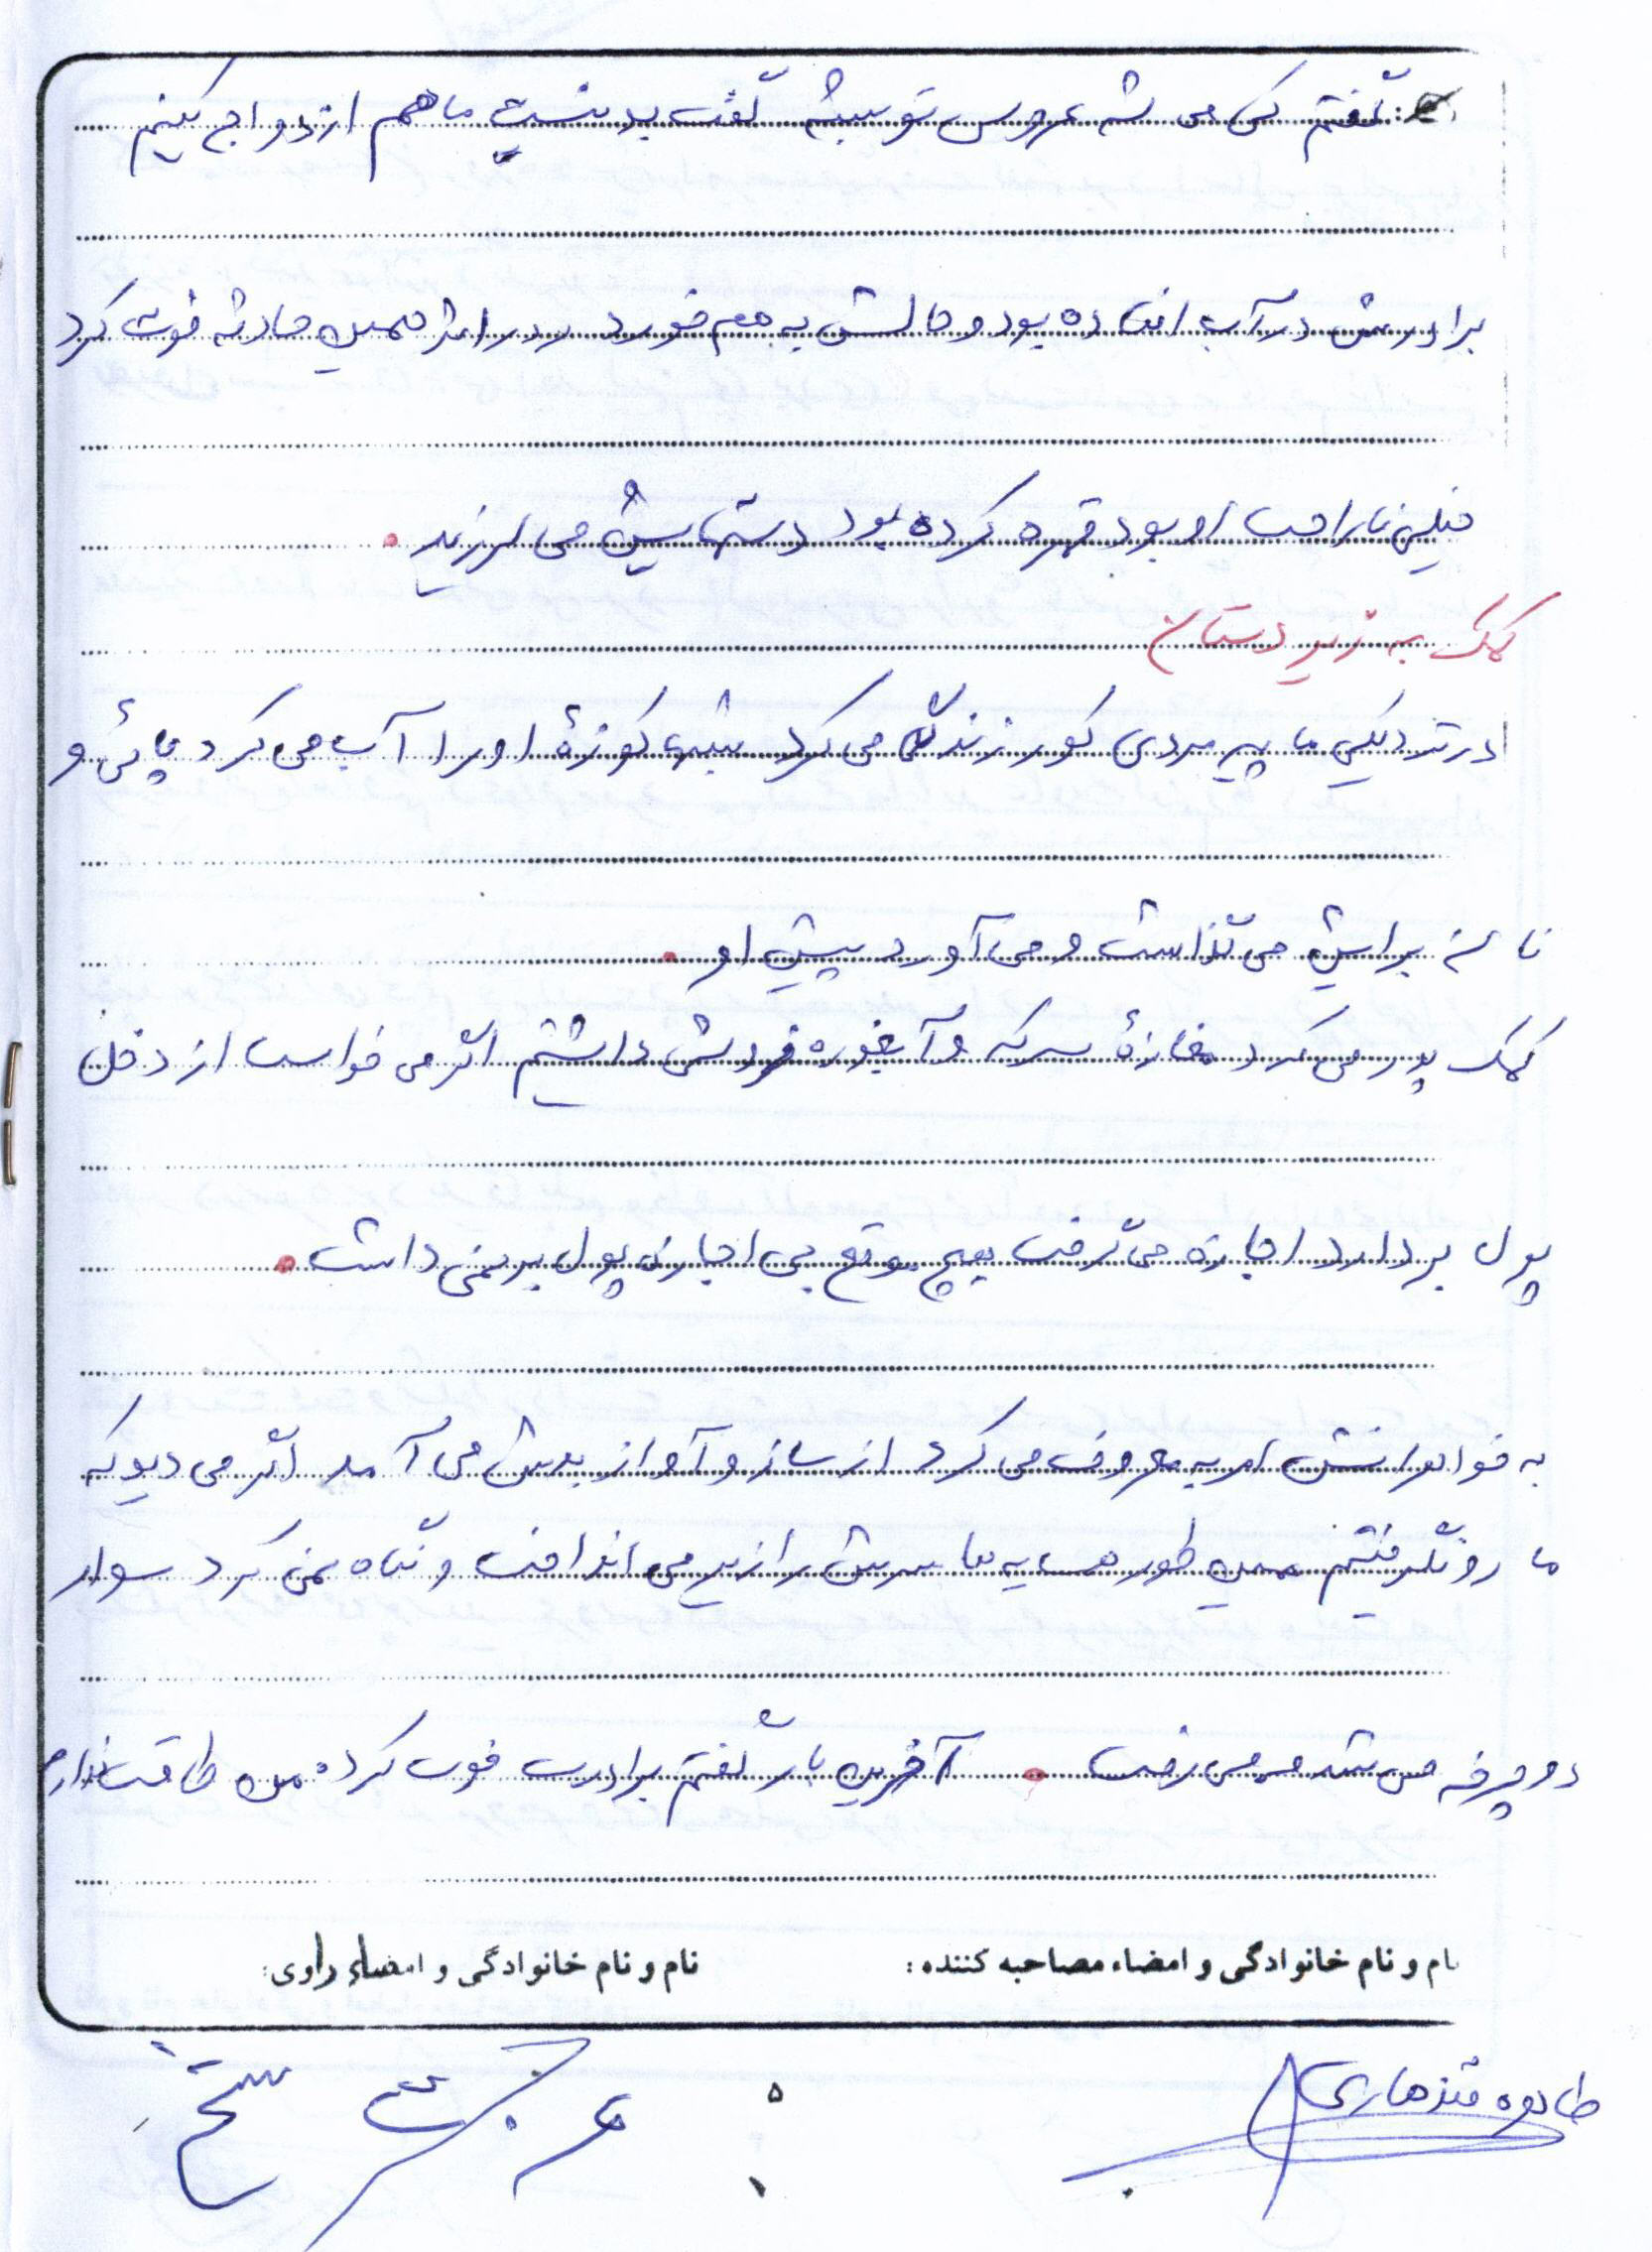 گفتم کی می شه عروس تو ببینم گفت بد نیست ما هم ازدواج کنیم
برادرش در آب افتاده بود و حالش به هم خورد در اثر همین حادثه فوت کرد
خیلی ناراحت او بود قهره کرده بود دستهایش می لرزید.
کمک به زیردستان
در نزدیکی ما پیرمردی کور زندگی می کرد همیشه کوزهٔ او را آب می کرد چائی و
نان برایش می گذاشت و می آورد پیش او.
کمک پدر می کرد مغازهٔ سرکه و آبغوره فروشی داشتیم اگر می خواست از دخل
پول بردارد اجازه می گرفت هیچ موقع بی اجازه پول بر نمی داشت.
به خواهرانش امر به معروف می کرد از ساز و آواز بدش می آمد اگر می دید که
ما رو نگرفتیم همین طور همسایه ها سرش را زیر می انداخت و نگاه نمی کرد سوار
دوچرخه می شد و می رفت. آخرین بار گفتم برادرت فوت کرده من طاقت ندارم
نام و نام خانوادگی و امضاء مصاحبه کننده: نام و نام خانوادگی و امضاء راوی:
طاهره قندهاری
۵
۱